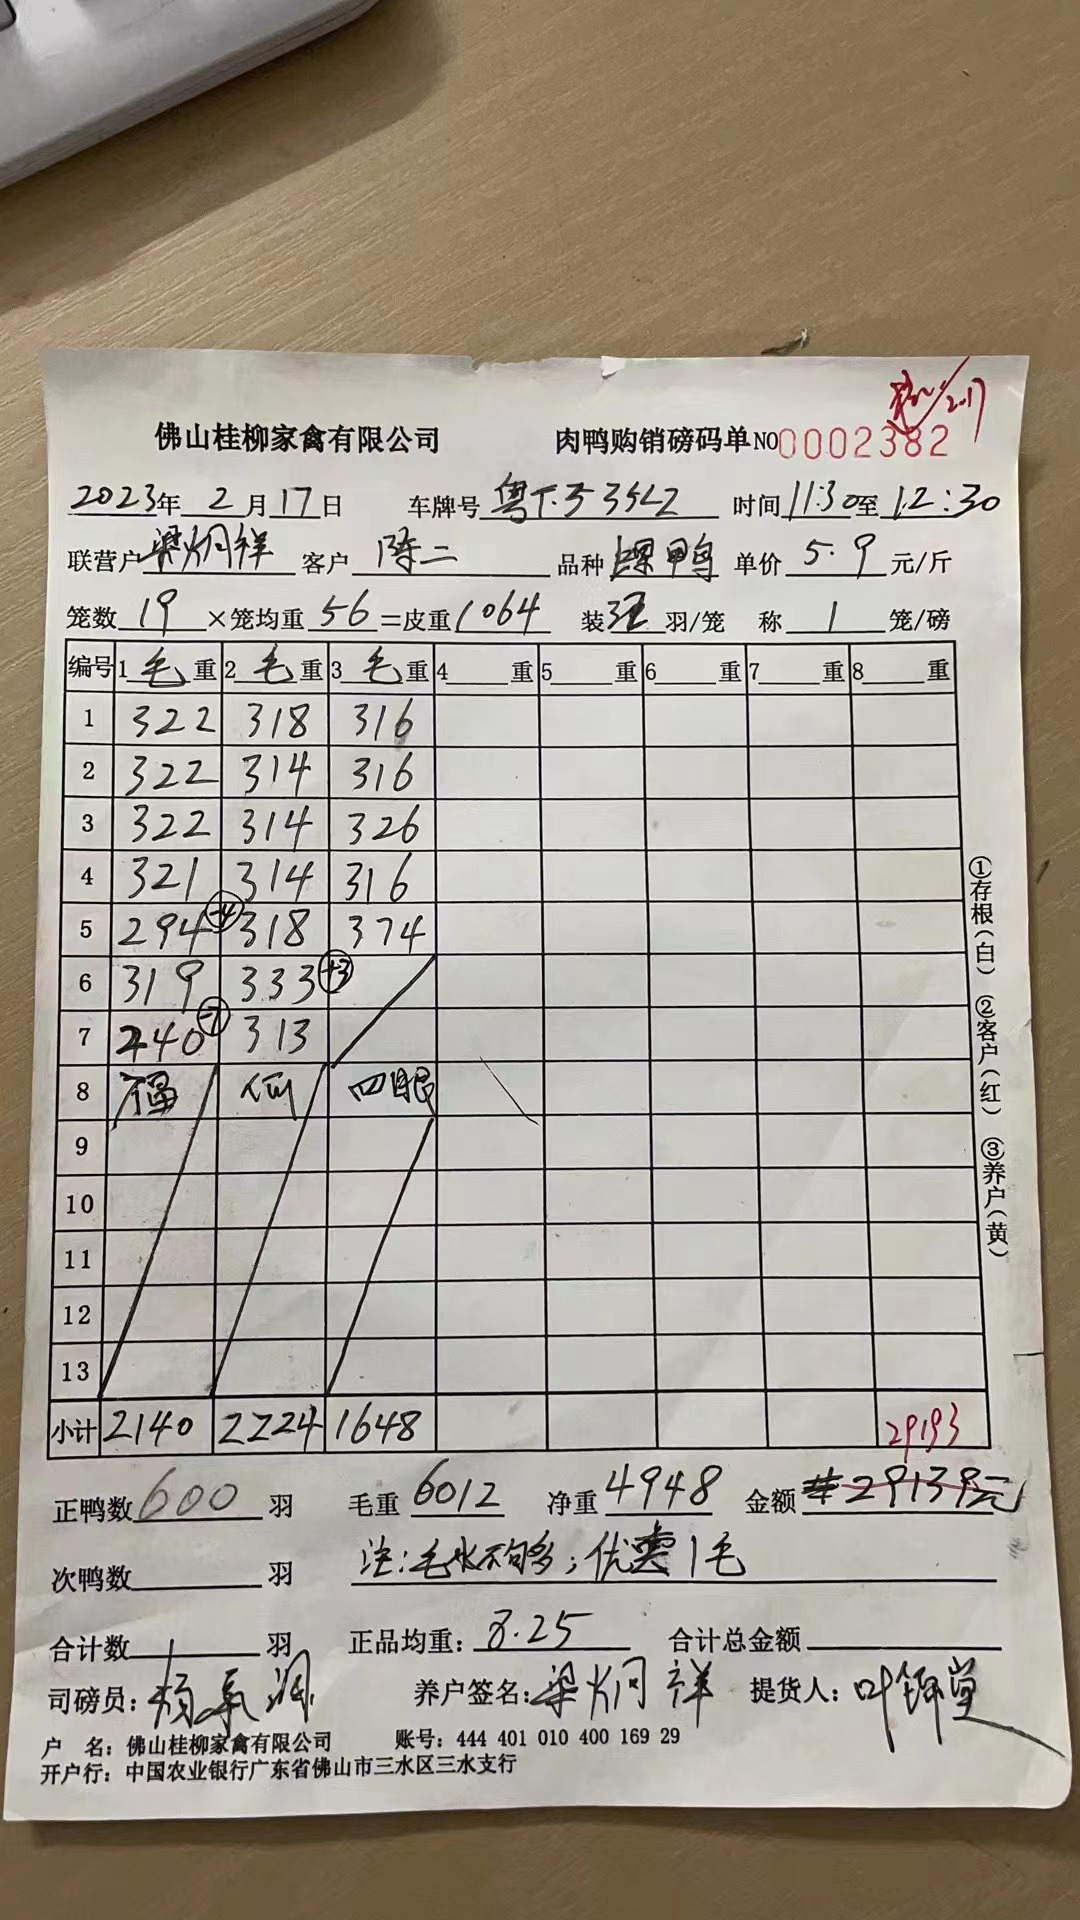 2.17
佛山桂柳家禽有限公司 肉鸭购销磅码单 NO 0002382
2023年 2月17日 车牌号 粤T.53522 时间 11:30至 12:30
联营户 梁炳祥 客户 陈二 品种 鸭 单价 5.9 元/斤
笼数 19 ×笼均重 56 =皮重 1064 装 羽/笼 称 1 笼/磅
编号 1 毛 重 2 毛 重 3 毛 重 4 重 5 重 6 重 7 重 8 重
1 322 318 316
2 322 314 316
3 322 314 326
4 321 314 316
5 294 -4 318 374
6 319 333 +3
7 240 -7 313
8 福 何 四眼
9
10
11
12
13
小计 2140 2224 1648 29193
正鸭数 600 羽 毛重 6012 净重 4948 金额 29139元
次鸭数 羽 注:毛水不够多;优惠1毛
合计数 羽 正品均重: 8.25 合计总金额
司磅员: 养户签名: 梁炳祥 提货人: 叶锦堂
户 名: 佛山桂柳家禽有限公司 账号: 444 401 010 400 169 29
开户行: 中国农业银行广东省佛山市三水区三水支行
①存根(白) ②客户(红) ③养户(黄)